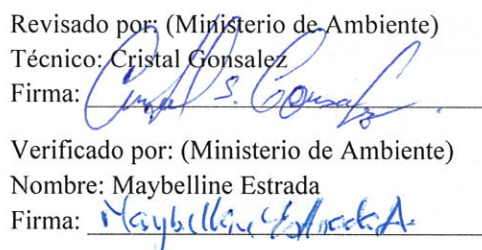 Revisado por: (Ministerio de Ambiente)
Técnico: Cristal Gonsalez
Firma: Cristal S. Gonsalez
Verificado por: (Ministerio de Ambiente)
Nombre: Maybelline Estrada
Firma: Maybelline Estrada A.